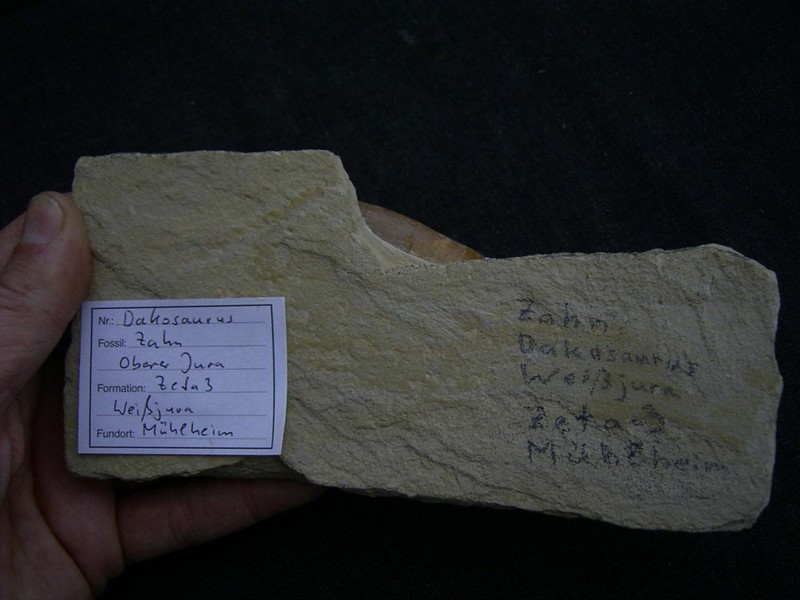 Nr.: Dakosaurus
Fossil: Zahn
Oberer Jura
Formation: Zeta 3
Weißjura
Fundort: Mühlheim
Zahn
Dakosaurus
Weißjura
Zeta-3
Mühlheim